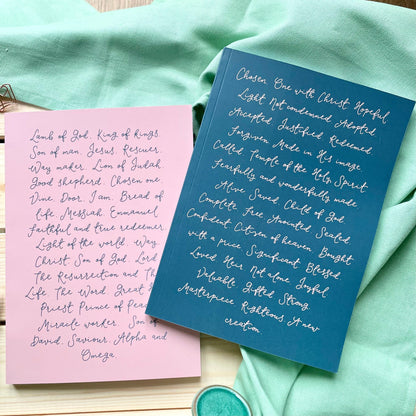 Lamb of God. King of kings
Son of man. Jesus. Rescuer.
Way maker. Lion of Judah.
Good shepherd. Chosen one.
Vine. Door. I am. Bread of
life. Messiah. Emmanuel
Faithful and true redeemer.
Light of the world. Way
Christ. Son of God. Lord
The Resurrection and Th
Life. The Word. Great H
Priest. Prince of Peac
Miracle worker. Son of
David. Saviour. Alpha and
Omega
Chosen. One with Christ. Hopeful.
Light. Not condemned. Adopted.
Accepted. Justified. Redeemed.
Forgiven. Made in His image.
Called. Temple of the Holy Spirit.
Fearfully and wonderfully made.
Alive. Saved. Child of God.
Complete. Free. Anointed. Sealed.
Confident. Citizen of heaven. Bought
with a price. Significant. Blessed.
Loved. Heir. Not alone. Joyful.
Valuable. Gifted. Strong.
Masterpiece. Righteous. A new
creation